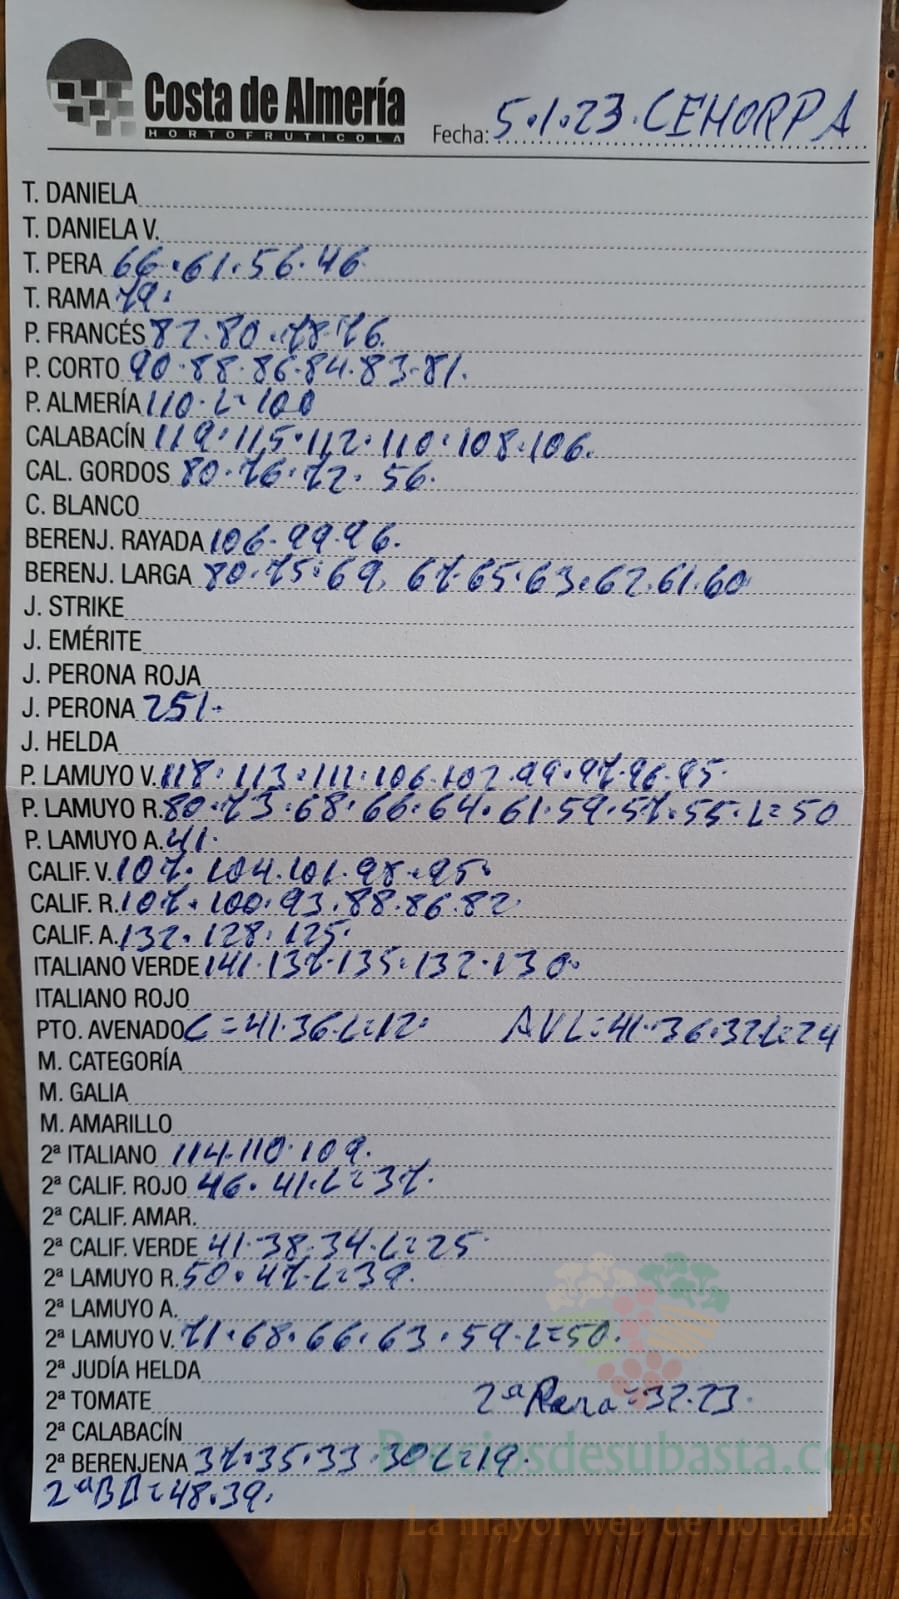 Costa de Almería
HORTOFRUTICOLA
Fecha: 5.1.23.CEHORPA
T. DANIELA
T. DANIELA V.
T. PERA 66.61.56.46
T. RAMA 79.
P. FRANCÉS 82.80.78.76.
P. CORTO 90.88.86.84.83.81.
P. ALMERÍA 110.L=100
CALABACÍN 119.115.112.110.108.106.
CAL. GORDOS 80.76.72.56.
C. BLANCO
BERENJ. RAYADA 106.99.96.
BERENJ. LARGA 80.75.69.67.65.63.62.61.60
J. STRIKE
J. EMÉRITE
J. PERONA ROJA
J. PERONA 251.
J. HELDA
P. LAMUYO V. 118.113.111.106.102.99.97.96.95.
P. LAMUYO R. 80.73.68.66.64.61.59.57.55.L=50
P. LAMUYO A. 41.
CALIF. V. 107.104.101.98.95.
CALIF. R. 107.100.93.88.86.82
CALIF. A. 132.128.125.
ITALIANO VERDE 141.137.135.132.130.
ITALIANO ROJO
PTO. AVENADO C=41.36.L=12. AVL=41.36.32.L=24
M. CATEGORÍA
M. GALIA
M. AMARILLO
2ª ITALIANO 114.110.109.
2ª CALIF. ROJO 46.41.L=37.
2ª CALIF. AMAR.
2ª CALIF. VERDE 41.38.34.L=25
2ª LAMUYO R. 50.47.L=39.
2ª LAMUYO A.
2ª LAMUYO V. 71.68.66.63.59.L=50.
2ª JUDÍA HELDA
2ª TOMATE 2ªPera=32.23.
2ª CALABACÍN
2ª BERENJENA 37.35.33.30.L=19.
2ªBB=48.39.
Preciosdesubasta.com
La mayor web de hortalizas